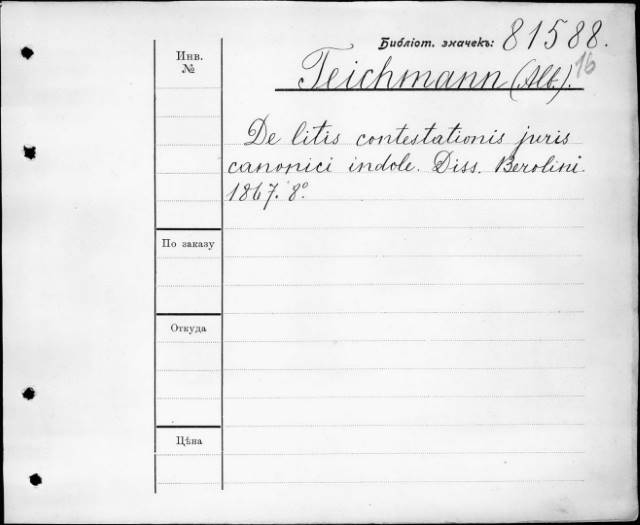 Библіот. значекъ: 81588.
16
Teichmann (Alb.).
Инв.
№
De litis contestationis juris
canonici indole. Diss. Berolini.
1867. 8º.
По заказу
Откуда
Цѣна